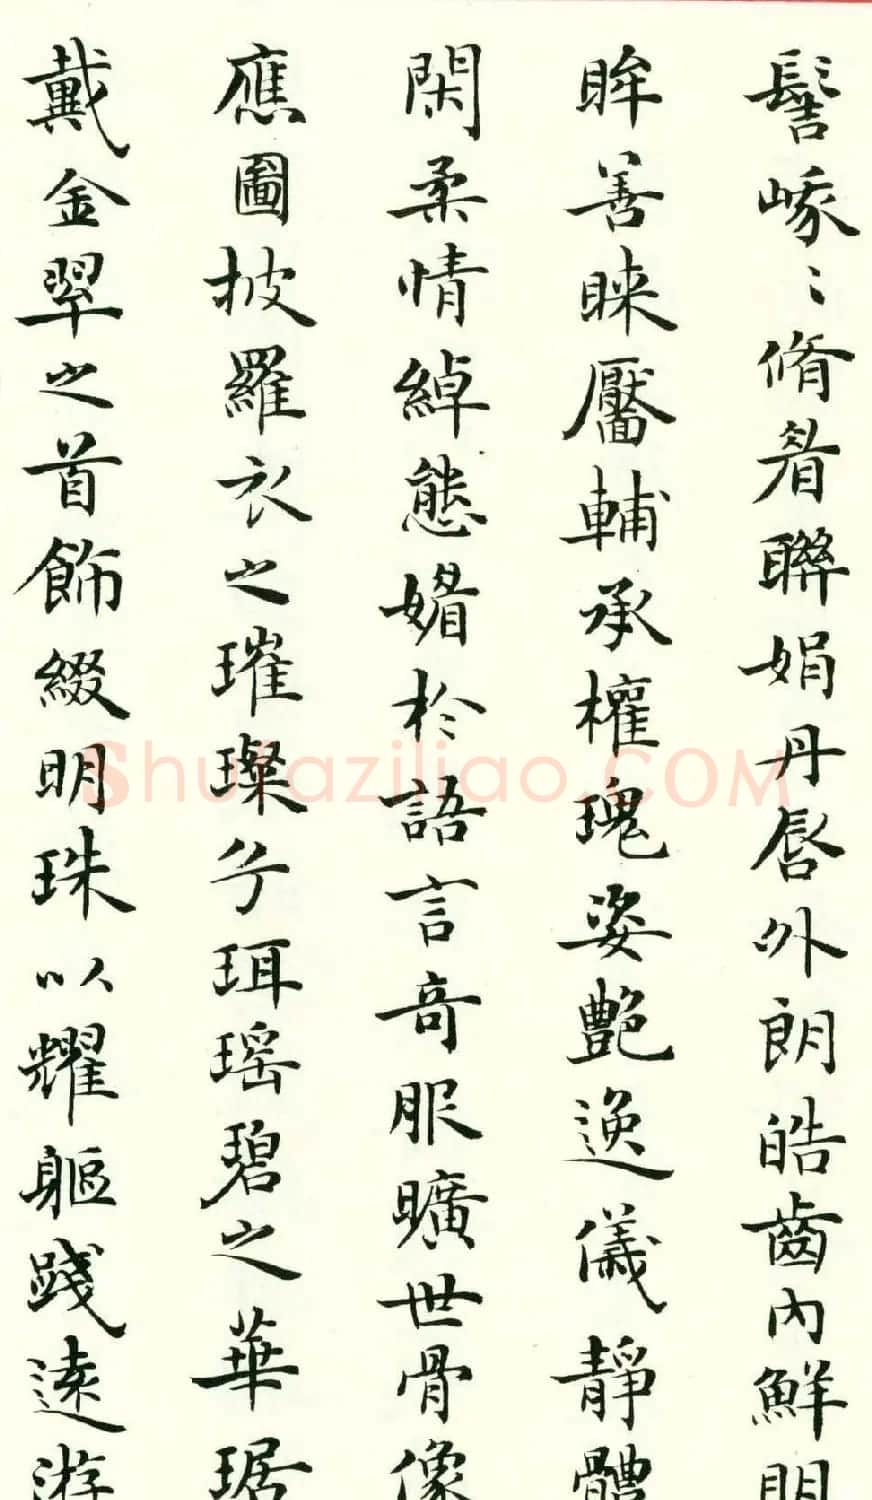 髻峩〻脩眉聯娟丹脣外朗皓齒內鮮明
眸善睞靨輔承權瑰姿艷逸儀靜體
閑柔情綽態媚於語言奇服曠世骨像
應圖披羅衣之璀璨兮珥瑤碧之華琚
戴金翠之首飾綴明珠以耀軀踐遠游
shufaziliao.COM